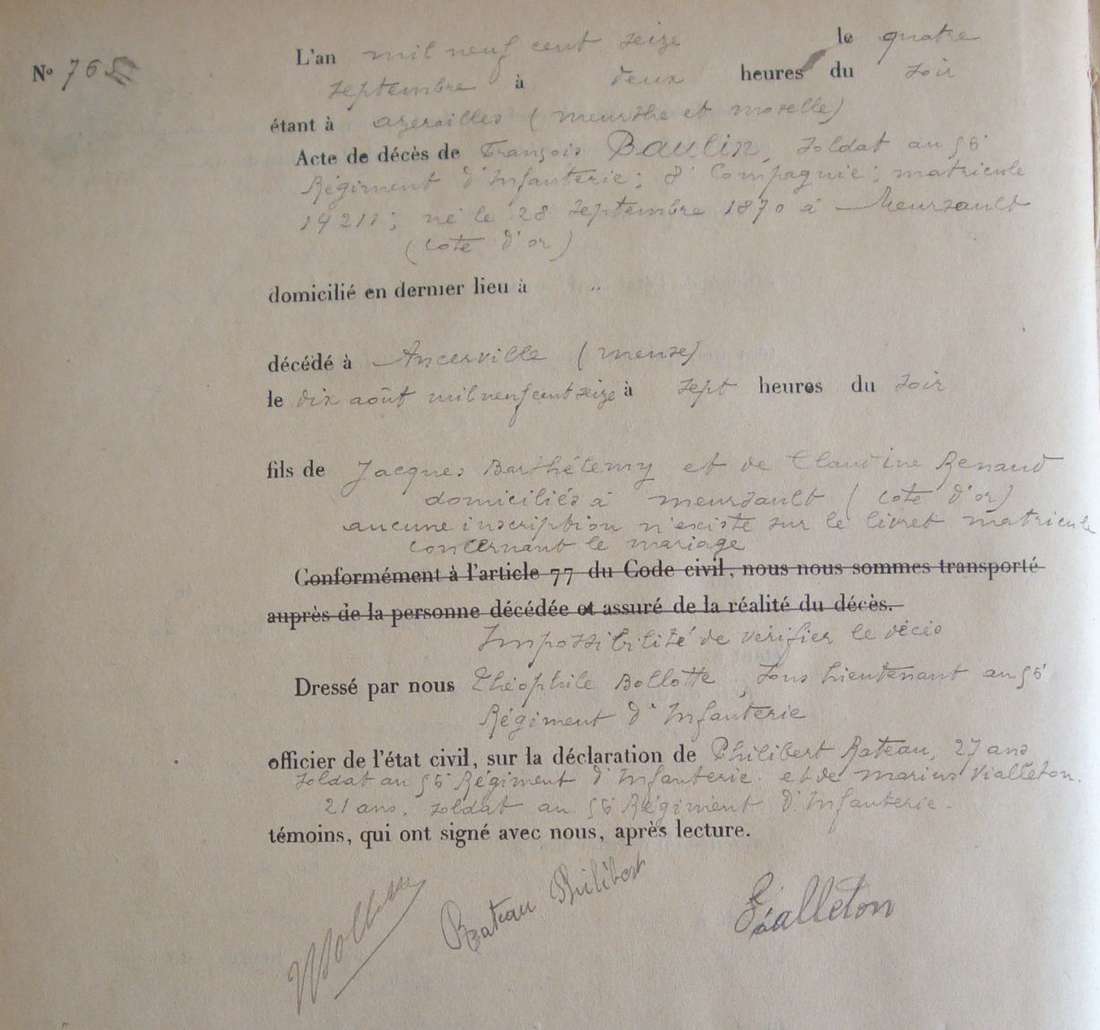 L'an mil neuf cent seize le quatre
N° 765
septembre à deux heures du soir
étant à azerailles (meurthe et moselle)
Acte de décès de François Baulin, soldat au 56e
Régiment d'Infanterie; 8e Compagnie; matricule
14211; né le 28 septembre 1870 à Meursault
(cote d'or)
domicilié en dernier lieu à "
décédé à Ancerville (meuse)
le dix août mil neuf cent seize à sept heures du soir
fils de Jacques Barthélemy et de Claudine Renaud
domiciliés à meursault (cote d'or)
aucune inscription n'existe sur le livret matricule
concernant le mariage
Conformément à l'article 77 du Code civil, nous nous sommes transporté
auprès de la personne décédée et assuré de la réalité du décès.
Impossibilité de vérifier le décès
Dressé par nous Théophile Bollotte, sous lieutenant au 56e
Régiment d'Infanterie
officier de l'état civil, sur la déclaration de Philibert Rateau, 27 ans
soldat au 56e Régiment d'Infanterie. et de marius Vialleton.
21 ans. soldat au 56e Régiment d'Infanterie.
témoins, qui ont signé avec nous, après lecture.
Bollotte Rateau Philibert Vialleton